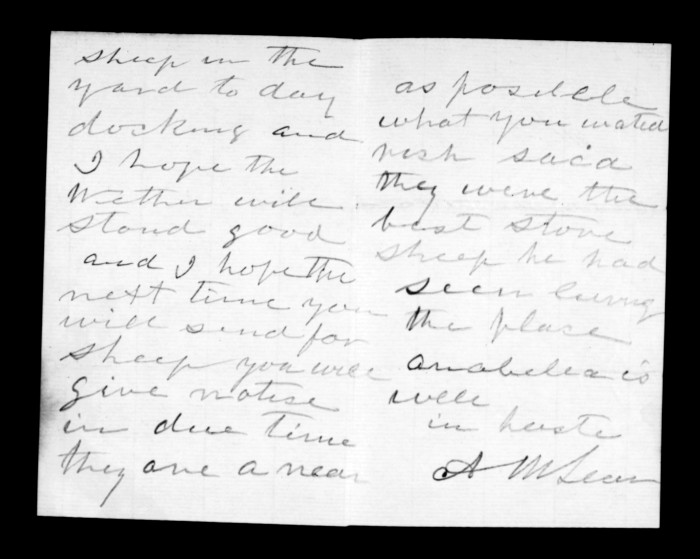 sheep in the
yard to day
docking and
I hope the
Wether will
stand good
and I hope the
next time you
will send for
sheep you will
give notise
in due time
they are a near
as posible
what you wated
said
they were the
best store
sheep he had
seen
the plase
anabelea is
well
in haste
A McLean